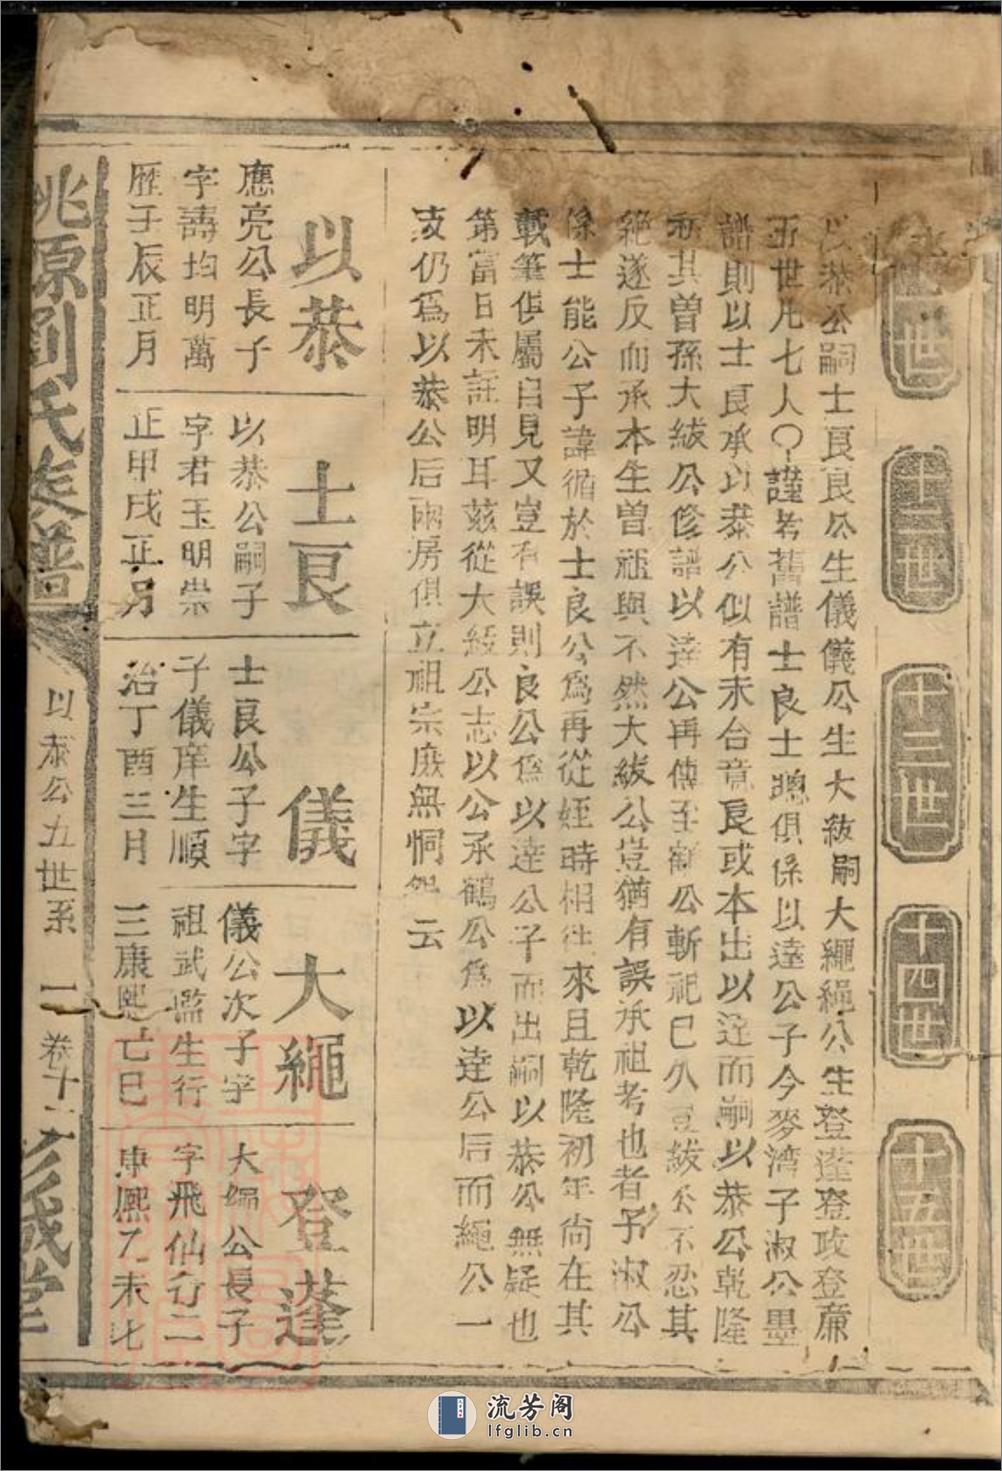 十二世
十三世
十四世
十五世
以恭公嗣士良良公生儀儀公生大紱嗣大繩繩公生登蓬登政登廉
五世凡七人〇謹考舊譜士良士驄俱係以達公子今麥灣子淑公墨
譜則以士良承以恭公似有未合竟良或本出以達而嗣以恭公乾隆
初其曾孫大紱公修譜以達公再傳至鶴公斬祀已久豈紱公不忍其
絕遂反而承本生曾祖與不然大紱公豈猶有誤承祖考也者子淑公
係士能公子諱循於士良公為再從姪時相往來且乾隆初年尚在其
載筆俱屬目見又豈有誤則良公為以達公子而出嗣以恭公無疑也
第當日未註明耳茲從大紱公志以公承鶴公為以達公后而繩公一
支仍為以恭公后兩房俱立祖宗庶無恫怨云
以恭
應亮公長子
字壽均明萬
歷子辰正月
士良
以恭公嗣子
字君玉明崇
正甲戌正月
儀
士良公子字
子儀庠生順
治丁酉三月
大繩
儀公次子字
祖武監生行
三康熙丁巳
登蓬
大繩公長子
字飛仙行二
康熙乙未七
桃源劉氏族譜
以恭公五世系
二
卷十二
彭城堂
流芳阁
lfglib.cn